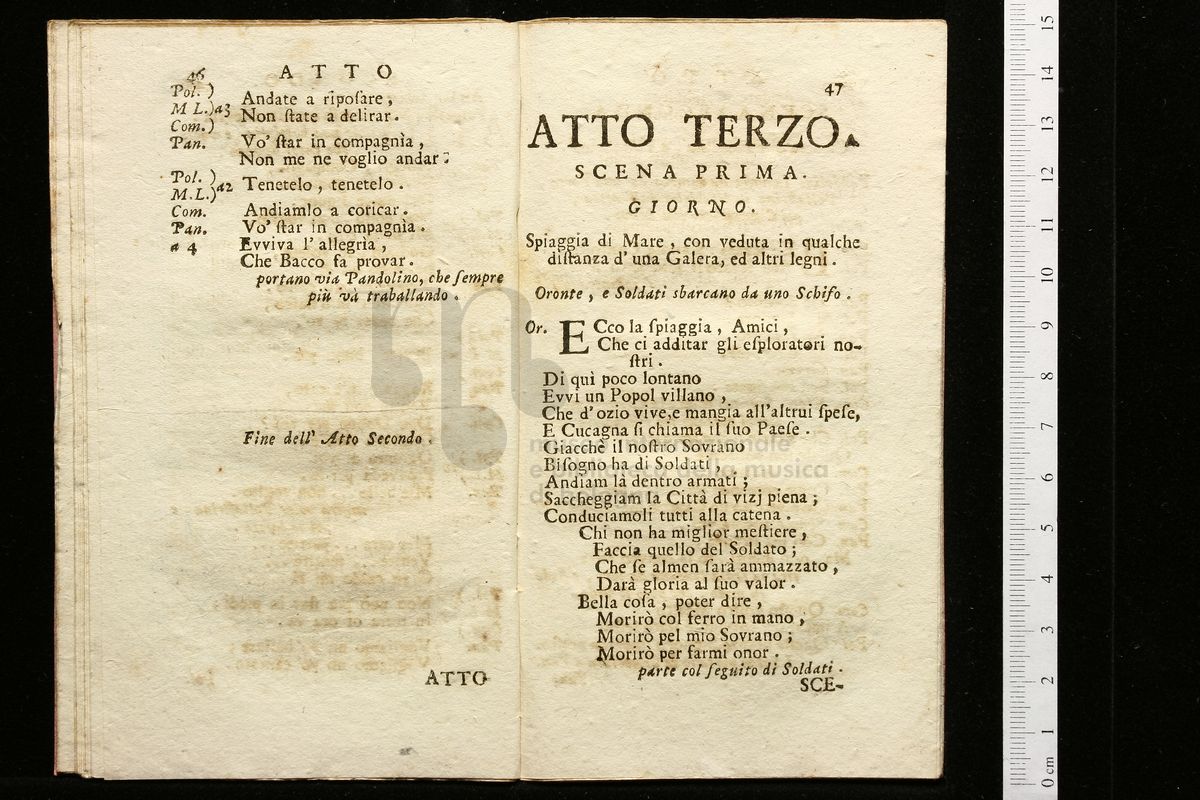 46 ATTO
Pol. )
M L.)a3 Andate a ripoſare ,
Com.) Non ſtate a delirar .
Pan. Vo' ſtar in compagnìa ,
Non me ne voglio andar :
Pol. )
M.L.)a2 Tenetelo , tenetelo .
Com. Andiamlo a coricar .
Pan. Vo' ſtar in compagnìa .
a 4 Evviva l' allegria ,
Che Bacco fa provar .
portano via Pandolino, che ſempre
più và traballando .
Fine dell' Atto Secondo .
ATTO
47
ATTO TERZO.
SCENA PRIMA.
GIORNO.
Spiaggia di Mare , con veduta in qualche
diſtanza d' una Galera, ed altri legni .
Oronte , e Soldati sbarcano da uno Schifo .
Or. ECco la ſpiaggia , Amici ,
Che ci additar gli eſploratori no-
ſtri .
Di quì poco lontano
Evvi un Popol villano ,
Che d' ozio vive,e mangia all'altrui ſpeſe,
E Cucagna ſi chiama il ſuo Paeſe .
Giacchè il noſtro Sovrano
Biſogno ha di Soldati ,
Andiam là dentro armati ;
Saccheggiam la Città di vizj piena ;
Conduciamoli tutti alla catena .
Chi non ha miglior meſtiere ,
Faccia quello del Soldato ;
Che ſe almen ſarà ammazzato ,
Darà gloria al ſuo valor .
Bella coſa , poter dire ,
Morirò col ferro in mano ,
Morirò pel mio Sovrano ;
Morirò per farmi onor .
parte col ſeguito di Soldati .
SCE-
museo internazionale
e biblioteca della musica
0 cm 1 2 3 4 5 6 7 8 9 10 11 12 13 14 15